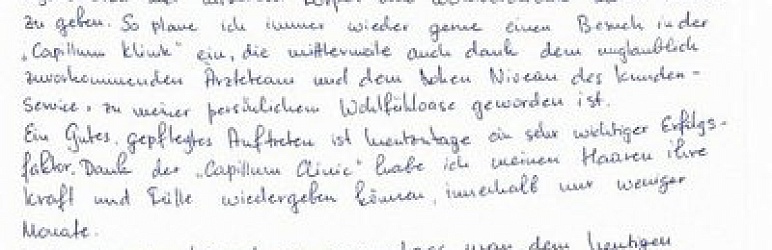 zu geben. So plane ich immer wieder gerne einen Besuch in der
„Capillum Klinik" ein, die mittlerweile auch dank dem unglaublich
zuvorkommenden Ärzteteam und dem hohen Niveau des Kunden-
Service, zu meiner persönlichem Wohlfühloase geworden ist.
Ein Gutes, gepflegtes Auftreten ist heutzutage ein sehr wichtiger Erfolgs-
faktor. Dank der „Capillum Clinic" habe ich meinen Haaren ihre
Kraft und Fülle wiedergeben können, innerhalb nur weniger
Monate.
dass man dem heutigen